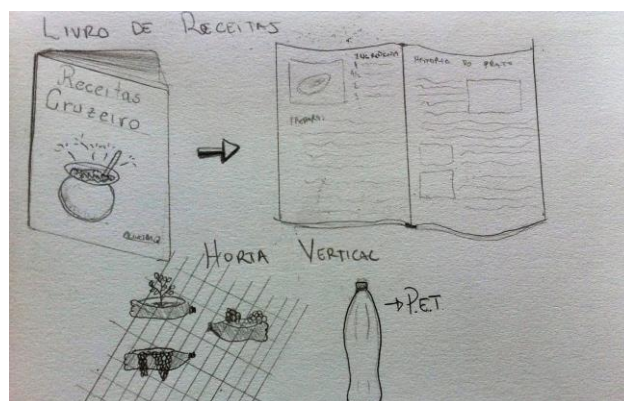 LIVRO DE RECEITAS
Receitas
Cruzeiro
INGREDIENTES
HISTÓRIA DO PRATO
PREPARO:
HORTA VERTICAL
→ P.E.T